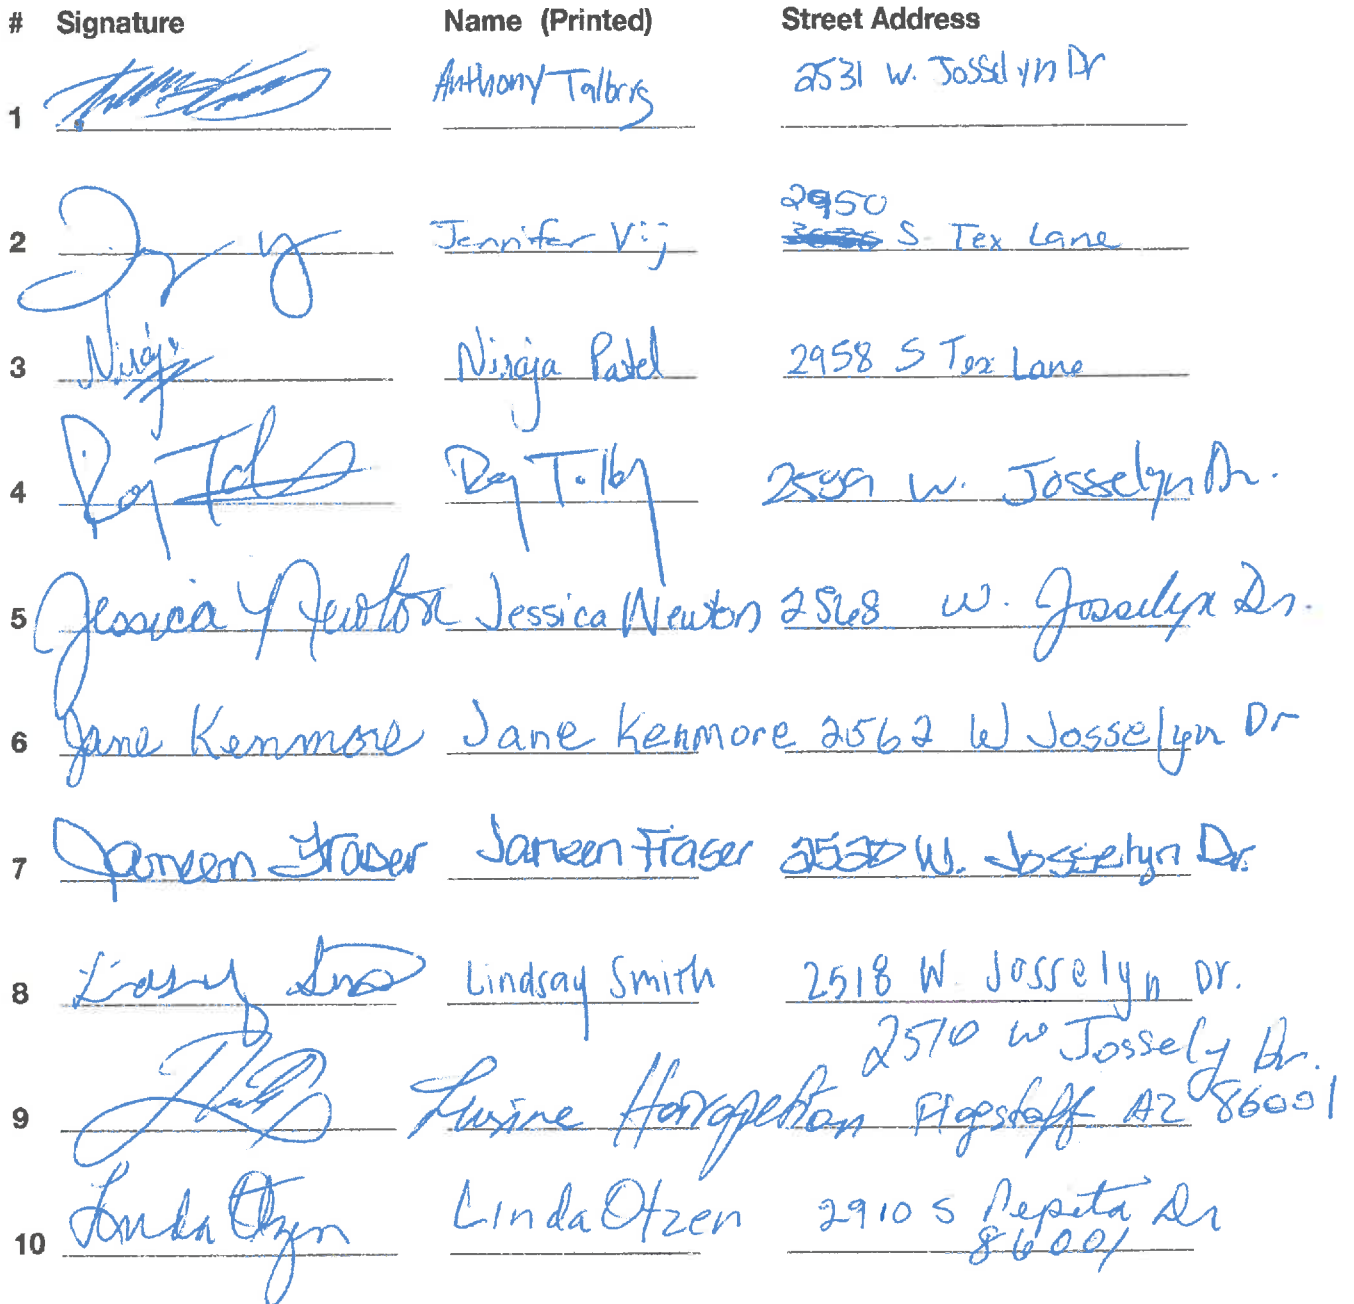 # Signature Name (Printed) Street Address
1 Anthony 2531 W. Josselyn Dr
2950
2 Jennifer Vij S. Tex Lane
3 Niraja Niraja Patel 2958 S Tex Lane
4 Roy Roy W. Josselyn Dr.
5 Jessica Newton Jessica Newton 2568 W. Josselyn Dr.
6 Jane Kenmore Jane Kenmore 2562 W Josselyn Dr
7 Janeen Fraser Janeen Fraser W. Josselyn Dr.
8 Lindsay Smith 2518 W. Josselyn Dr.
2510 W Jossely Dr.
9 Lusine Flagstaff AZ 86001
10 Linda Otzen Linda Otzen 2910 S Pepita Dr
86001